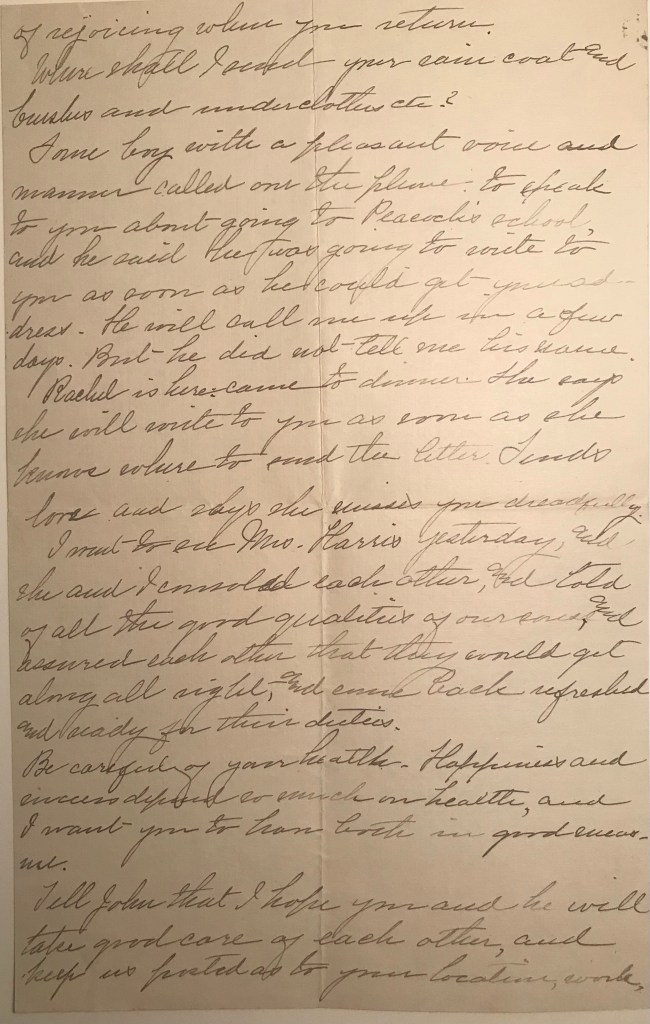 of rejoicing when you return.
Where shall I send your rain coat and
brushes and underclothes etc?
Some boy with a pleasant voice and
manner called over the phone. to speak
to you about going to Peacock's school,
and he said he was going to write to
you as soon as he could get your ad-
dress. He will call me up in a few
days. But he did not tell me his name.
Rachel is here. came to dinner. She says
she will write to you as soon as she
knows where to send the letter. Sends
love and says she misses you dreadfully.
I went to see Mrs. Harris yesterday, and
she and I consoled each other, and told
of all the good qualities of our sons, and
assured each other that they would get
along all right, and come back refreshed
and ready for their duties.
Be careful of your health. Happiness and
success depend so much on health, and
I want you to have both in good meas-
ure.
Tell John that I hope you and he will
take good care of each other, and
keep us posted as to your location, work,